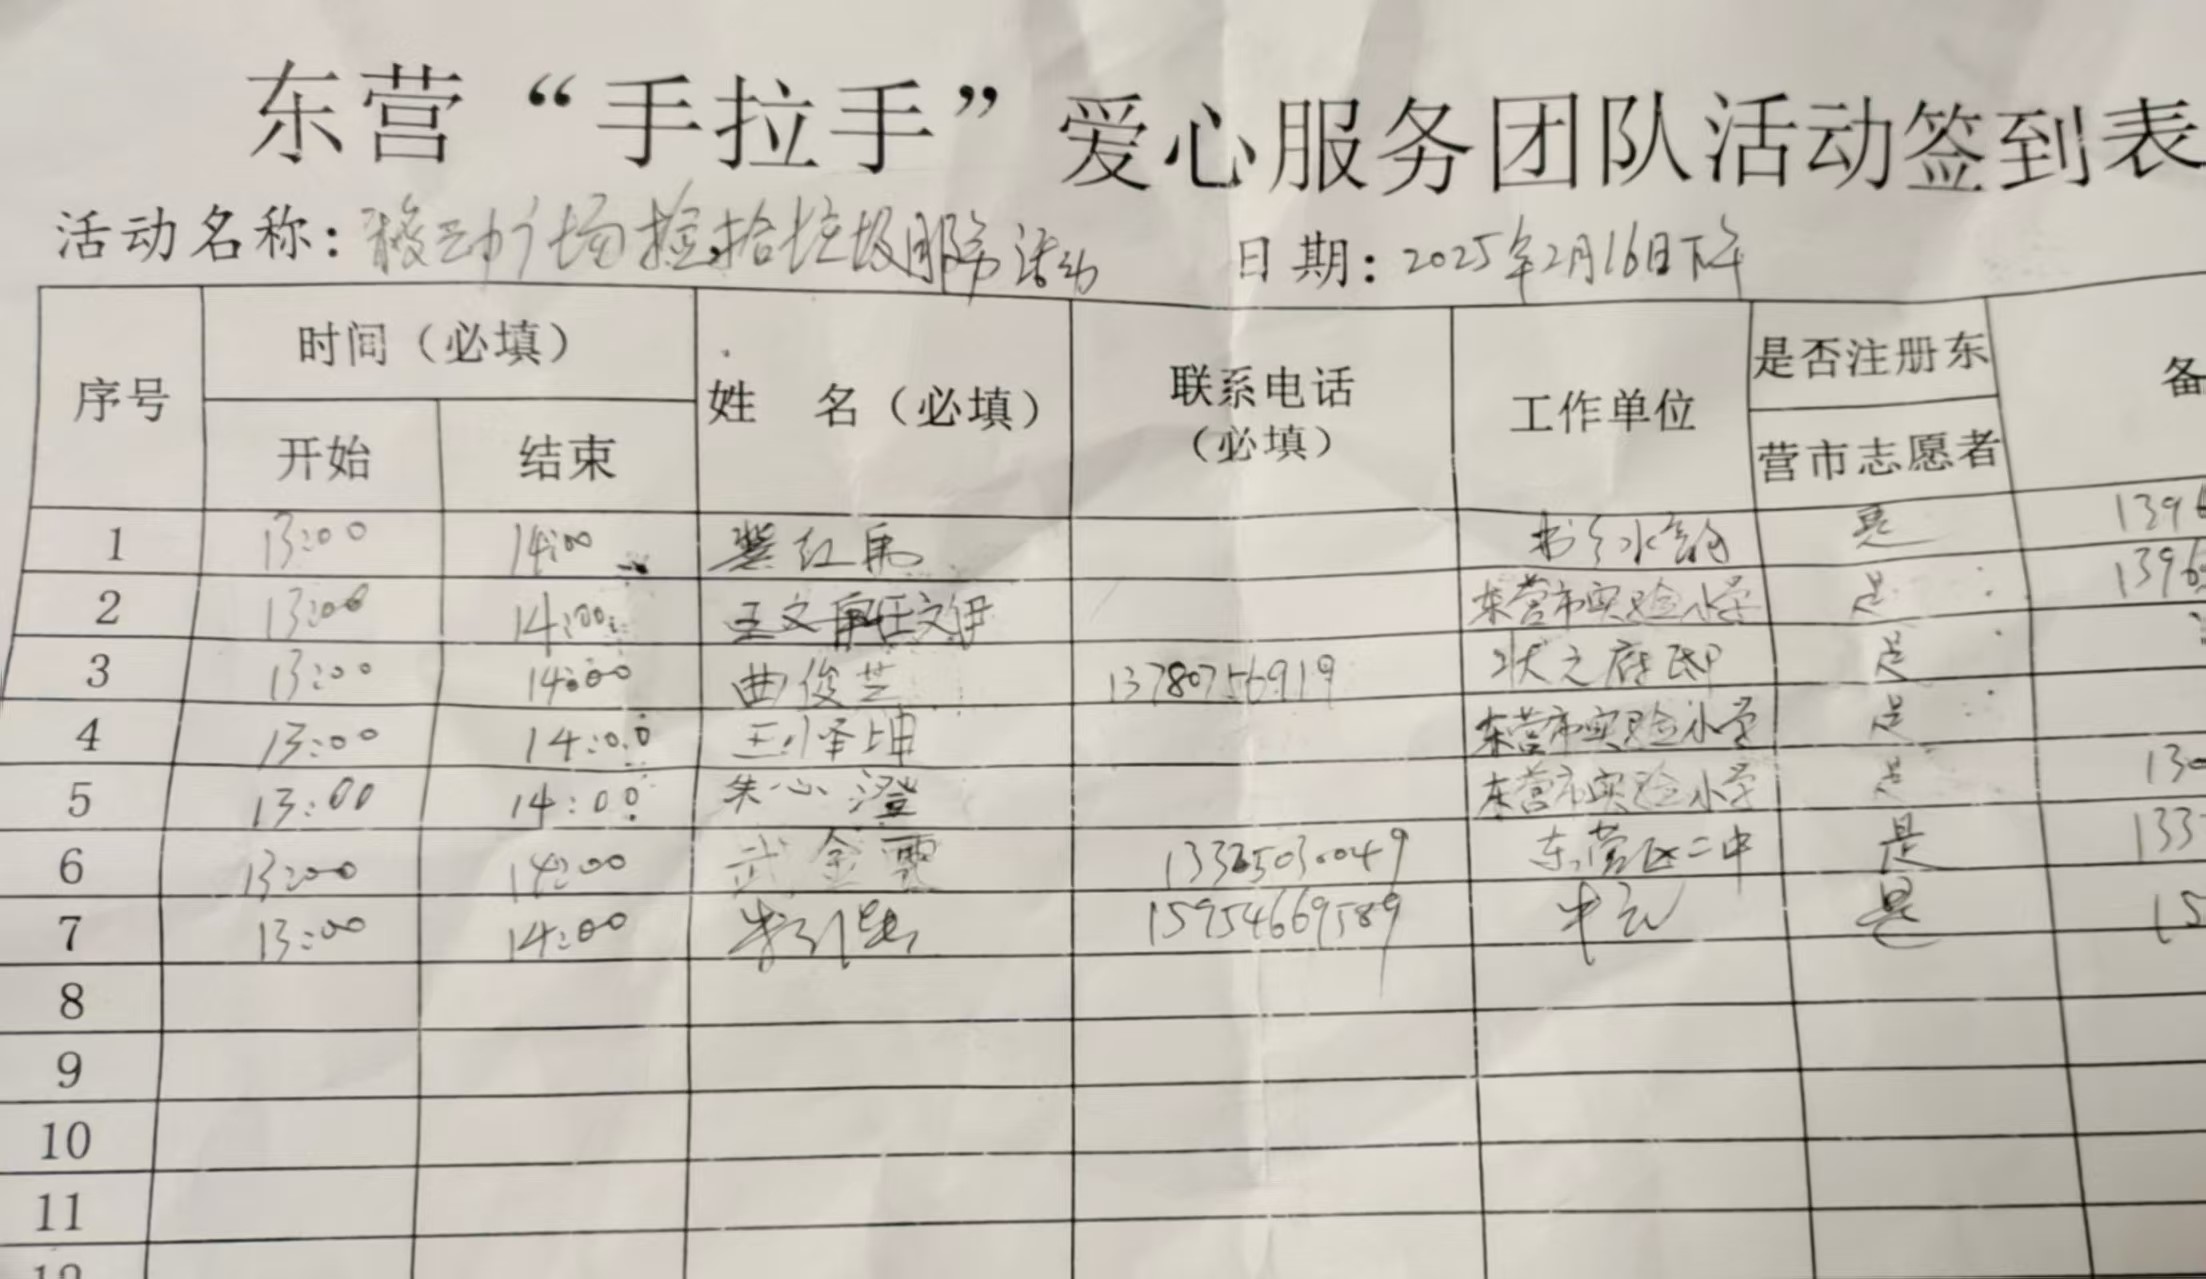 东营“手拉手”爱心服务团队活动签到表
活动名称：广场捡拾垃圾服务活动 日期：2025年2月16日下午
序号 时间（必填） 姓 名（必填） 联系电话（必填） 工作单位 是否注册东营市志愿者 备
开始 结束
1 13:00 14:00 红 是 1396
2 13:00 14:00 王文 任文伊 东营市实验小学 是 1396
3 13:00 14:00 曲俊芝 13780756919 状元府邸 是
4 13:00 14:00 王怿坤 东营市实验小学 是
5 13:00 14:00 朱心澄 东营市实验小学 是 130
6 13:00 14:00 武金霞 东营区二中 是 133
7 13:00 14:00 15954669589 是 15
8
9
10
11
12